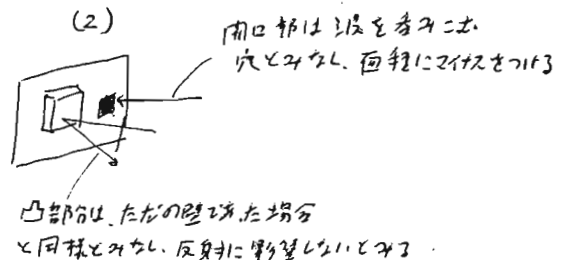 (2)
開口部は波を呑みこむ
穴とみなし、面積にマイナスをつける
凸部分は、ただの壁であった場合
と同様とみなし、反射に影響しないとみる.